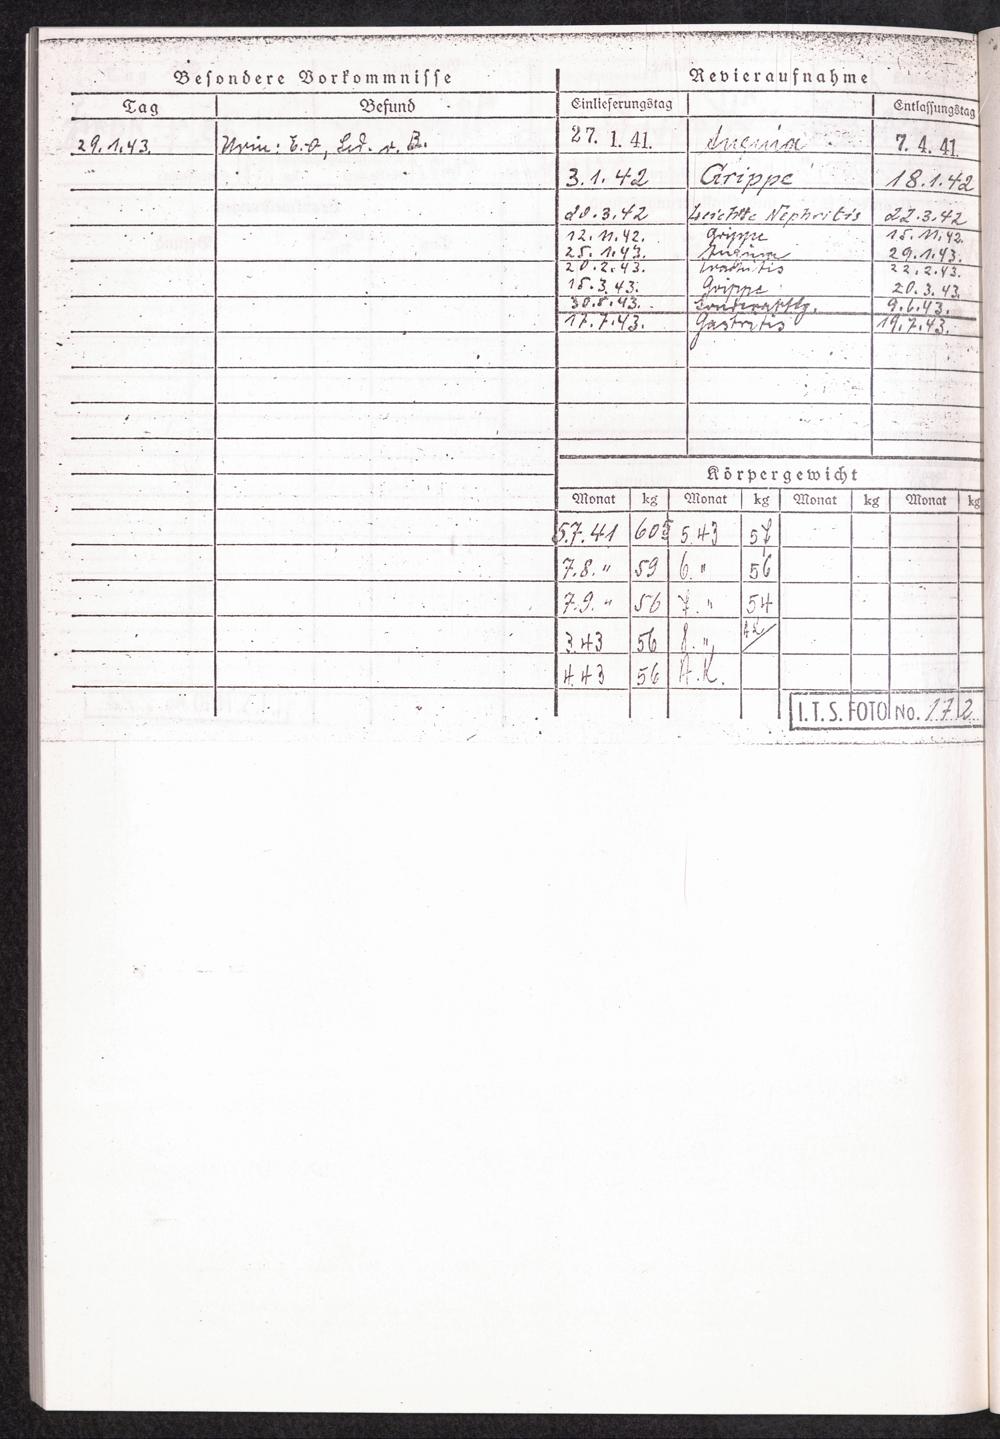 Besondere Vorkommnisse
Tag Befund
29.1.43. Urin: E.o, Sed. o. B.
Revieraufnahme
Einlieferungstag Entlassungstag
27. 1. 41. 7. 4. 41.
3.1.42 Grippe 18.1.42
20.3.42 Leichte Nephritis 22.3.42
12.11.42. Grippe 15.11.42.
25.1.43. Angina 29.1.43.
20.2.43. 22.2.43.
15.3.43. Grippe 20.3.43.
30.5.43. 9.6.43.
17.7.43. Gastritis 19.7.43.
Körpergewicht
Monat kg Monat kg Monat kg Monat kg
5.7.41 60 5 5.43 57
7.8. " 59 6. " 56
7.9. " 56 7. " 54
3.43 56 8. "
4.43 56 A.K.
I.T.S. FOTO No. 172